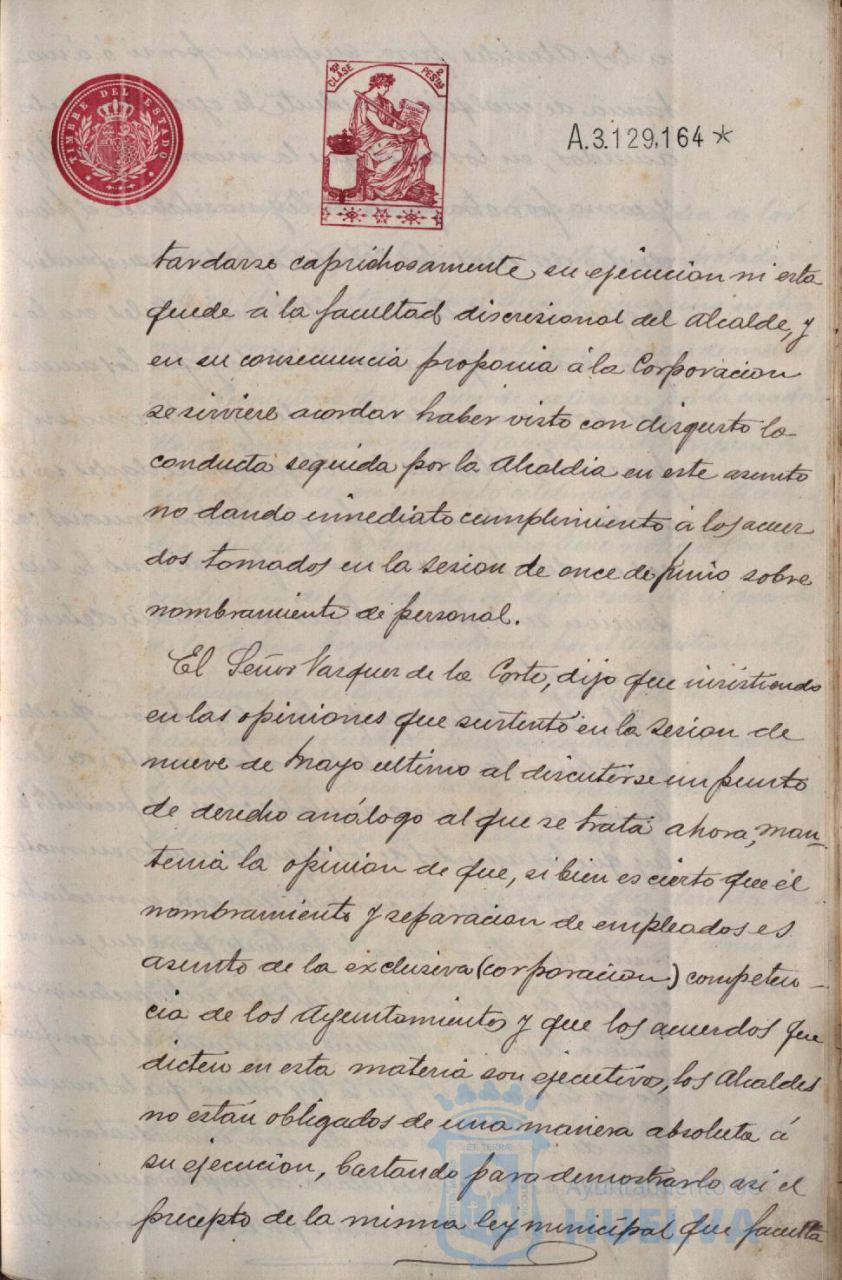 TIMBRE DEL ESTADO
10ª CLASE 2 PESTAS
A.3.129,164*
tardarse caprichosamente su ejecucion ni esta
quede á la facultad discresional del Alcalde, y
en su consecuencia proponia á la Corporacion
se sirviere acordar haber visto con disgusto la
conducta seguida por la Alcaldia en este asunto
no dando inmediato cumplimiento á los acuer
dos tomados en la sesion de once de Junio sobre
nombramiento de personal.
El Señor Vazquez de la Corte, dijo que insistiendo
en las opiniones que sustentó en la sesion de
nueve de Mayo ultimo al discutirse un punto
de derecho análogo al que se trata ahora, man-
tenia la opinion de que, si bien es cierto que el
nombramiento y separacion de empleados es
asunto de la exclusiva (corporacion) competen-
cia de los Ayuntamientos y que los acuerdos que
dicten en esta materia son ejecutivos, los Alcaldes
no están obligados de una manera absoluta á
su ejecucion, bastando para demostrarlo asi el
precepto de la misma ley municipal que faculta
Ayuntamiento de
HUELVA